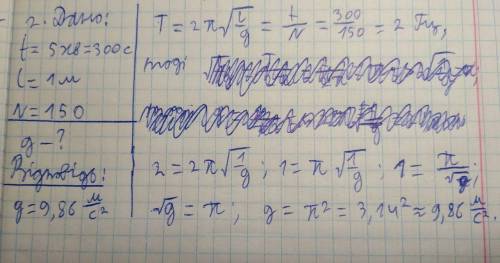 2. Дано:
t = 5хв = 300с
l = 1м
N = 150
g - ?
Відповідь:
g = 9,86 м/с²
T = 2π√(l/g) = t/N = 300/150 = 2 Гц,
тоді
2 = 2π√(1/g) ; 1 = π√(1/g) ; 1 = π/√g ;
√g = π ; g = π² = 3,14² ≈ 9,86 м/с².